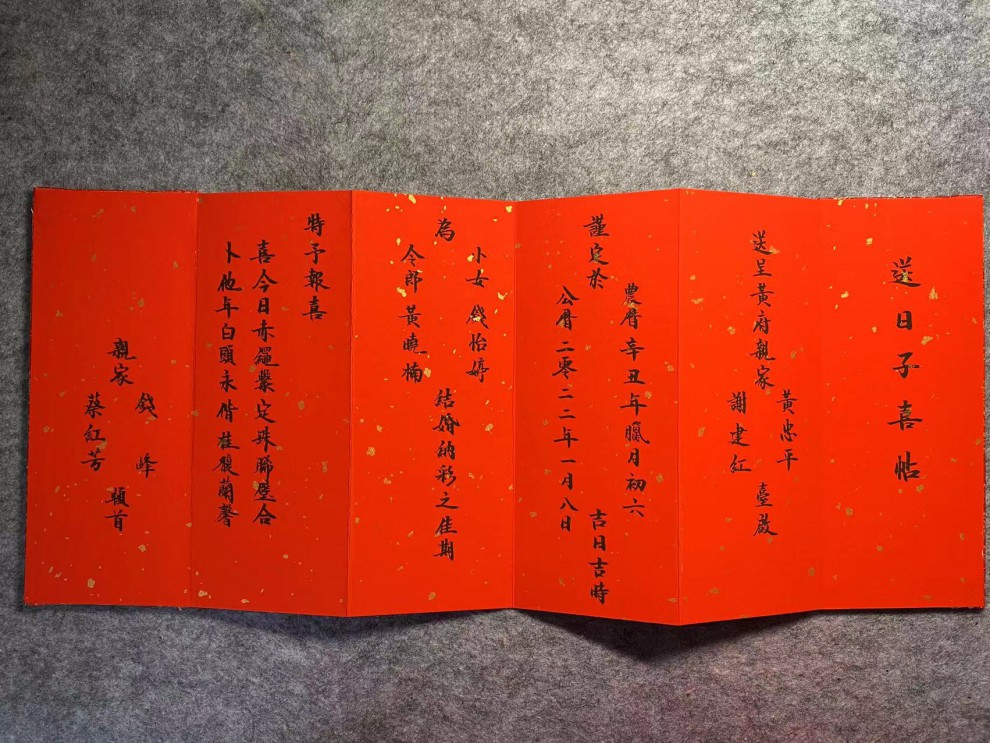 送日子喜帖
送呈黃府親家
黃忠平
謝建紅
臺啟
謹定於
農曆辛丑年臘月初六
公曆二零二二年一月八日
吉日吉時
為
小女 錢怡婷
令郎 黃曉楠
結婚納彩之佳期
特予報喜
喜今日赤繩繫定珠聯璧合
卜他年白頭永偕桂馥蘭馨
親家
錢峰
蔡紅芳
頓首